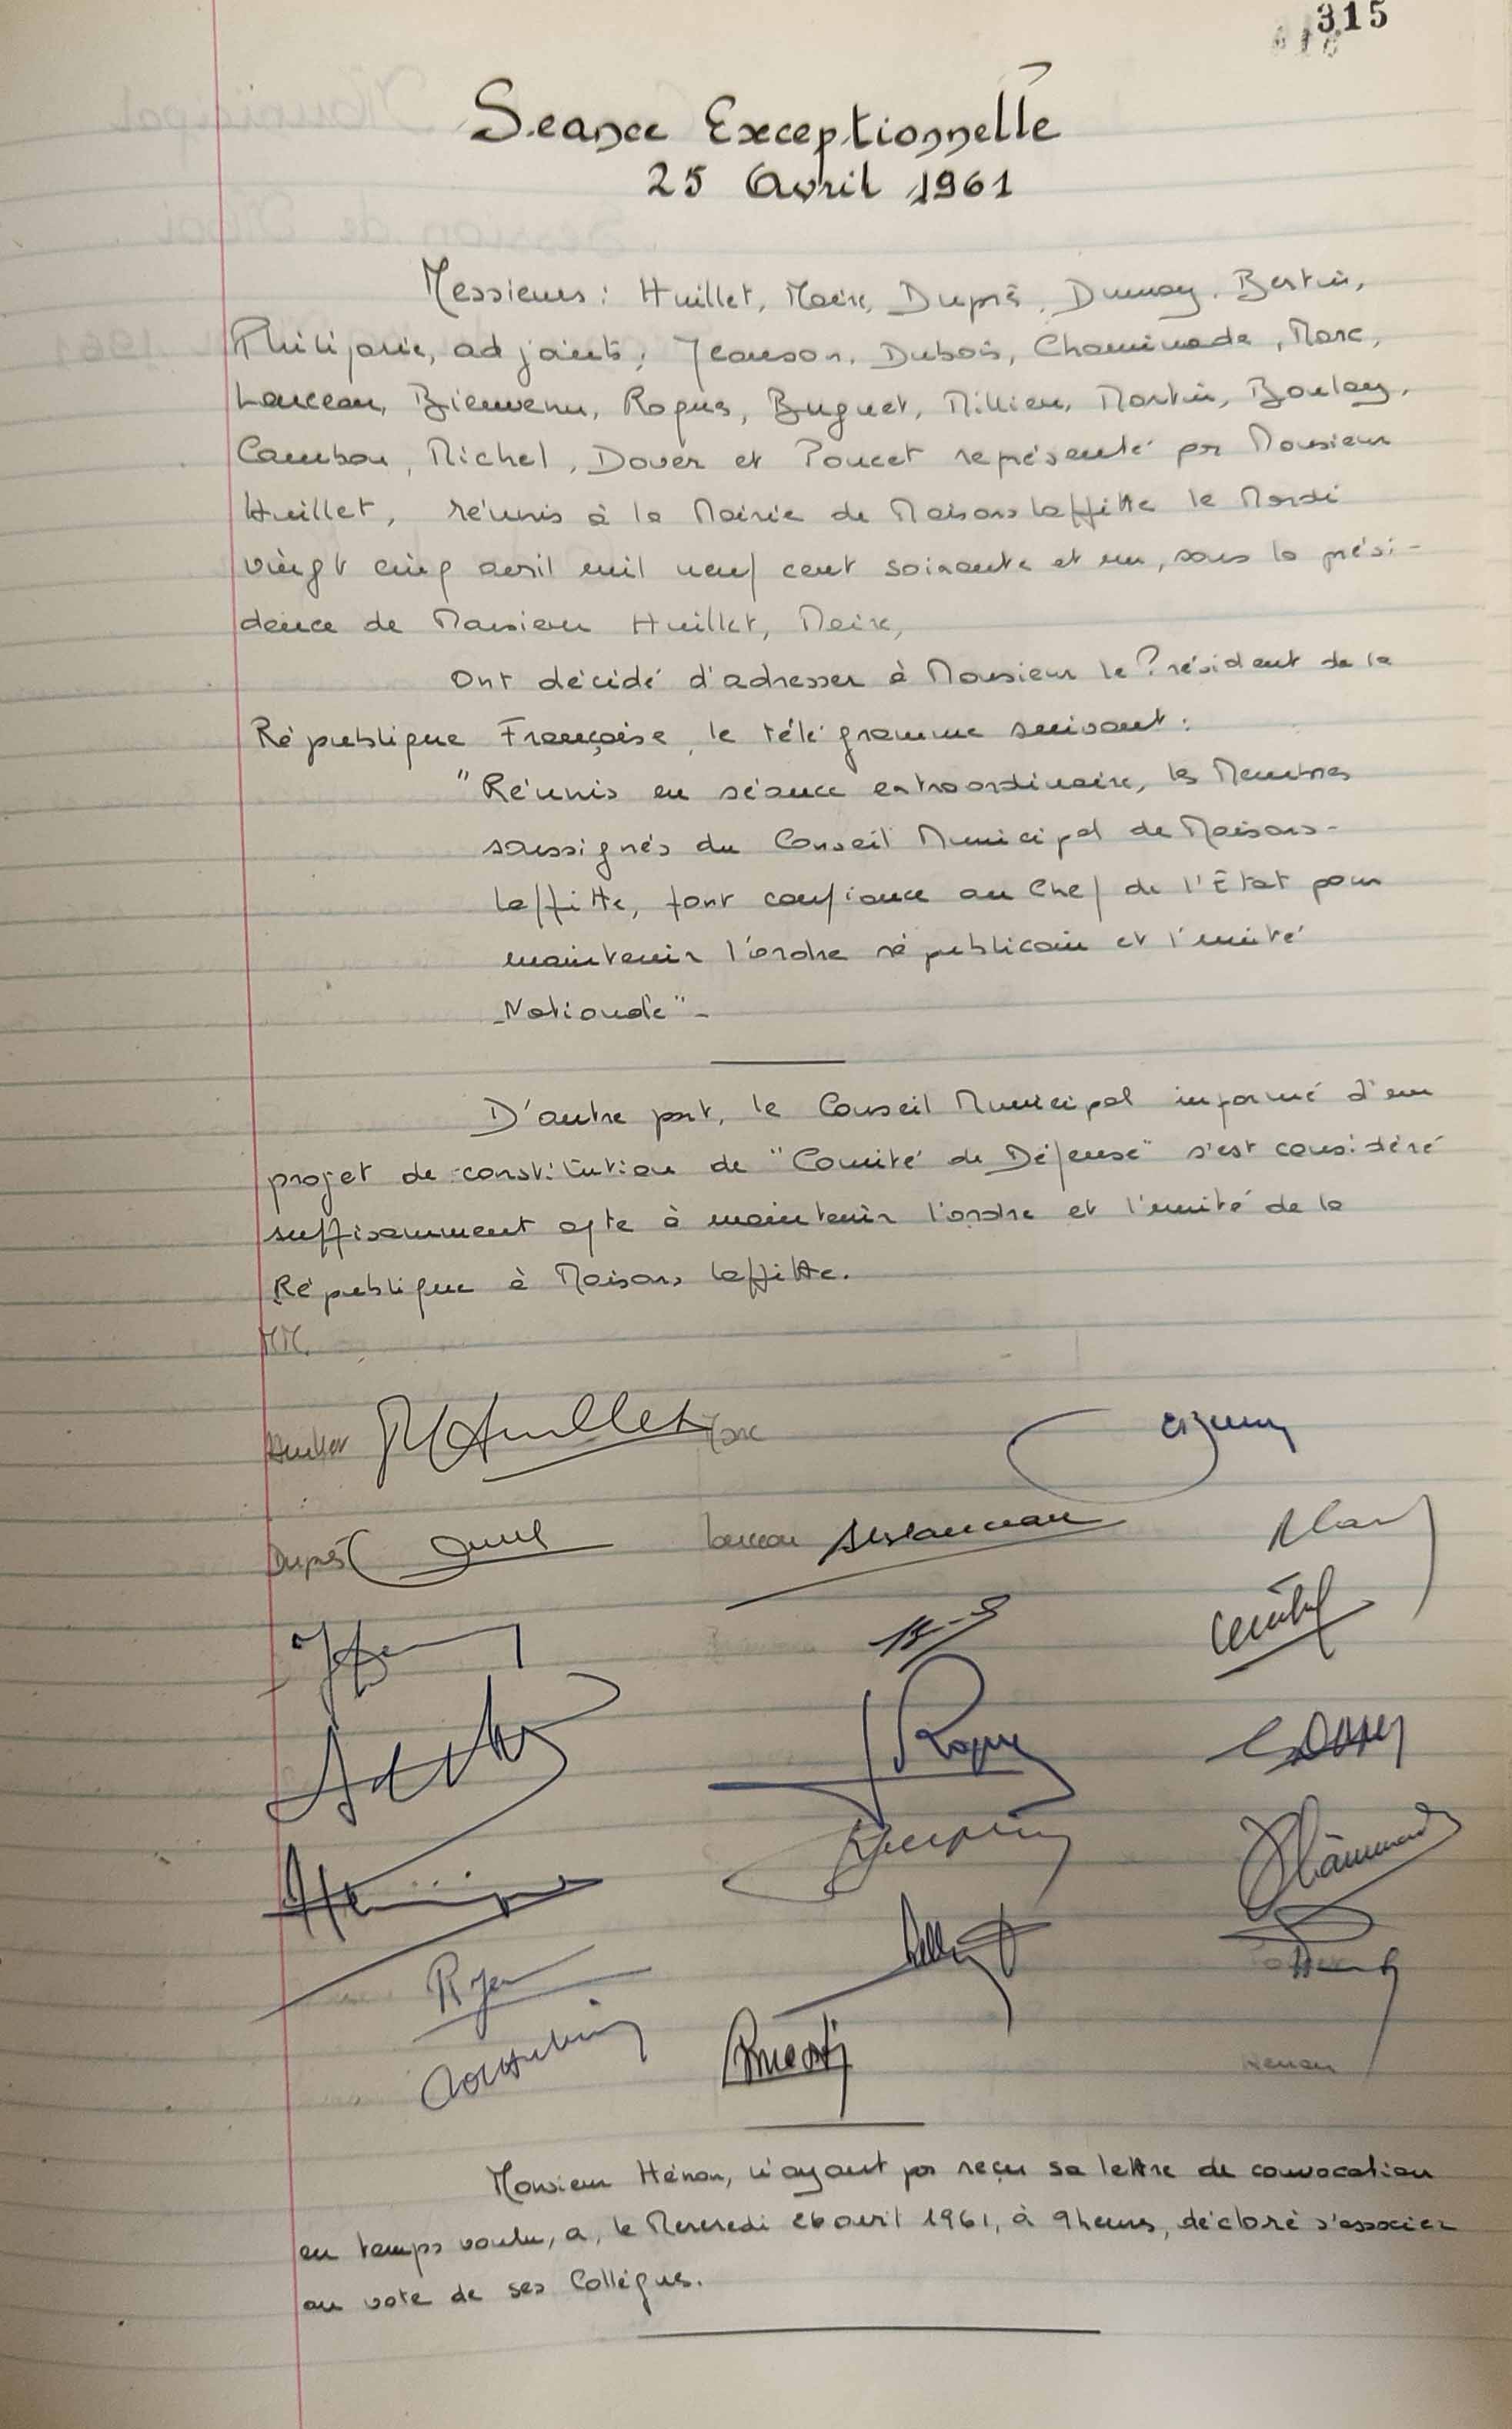 315
Séance Exceptionnelle
25 Avril 1961
Messieurs : Huillet, Maire, Dupré, Dumay, Bertin,
adjoints ; Jeanson, Dubois, Chaminade, Marc,
Lanceau, Bienvenu, Roques, Buguet, Millien, Martin, Boulay,
Cambou, Michel, Dover et Poucet représenté par Monsieur
Huillet, réunis à la Mairie de Maisons Laffitte le Mardi
vingt cinq avril mil neuf cent soixante et un, sous la prési-
dence de Monsieur Huillet, Maire,
Ont décidé d'adresser à Monsieur le Président de la
République Française, le télégramme suivant :
"Réunis en séance extraordinaire, les Membres
soussignés du Conseil Municipal de Maisons-
Laffitte, font confiance au Chef de l'Etat pour
maintenir l'ordre républicain et l'unité
Nationale" -
D'autre part, le Conseil Municipal informé d'un
projet de constitution de "Comité de Défense" s'est considéré
suffisamment apte à maintenir l'ordre et l'unité de la
République à Maisons Laffitte.
MM.
Huillet Huillet Marc
Dupré Lanceau
Bienvenu
Roques
Henon
Monsieur Hénon, n'ayant pas reçu sa lettre de convocation
en temps voulu, a, le Mercredi 26 avril 1961, à 9 heures, déclaré s'associer
au vote de ses Collègues.